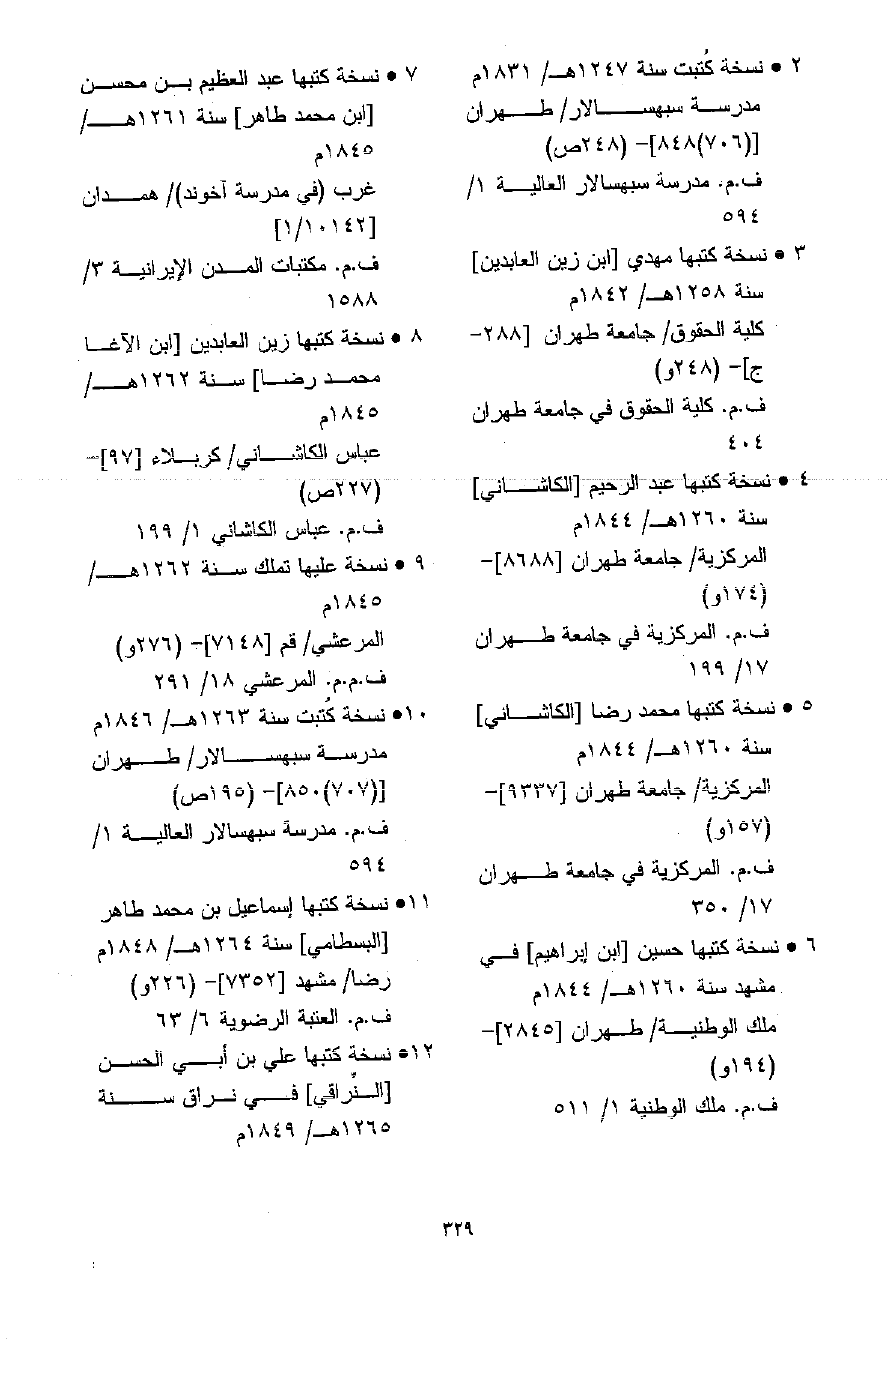 ٢ • نسخة كُتبت سنة ١٢٤٧هـ/ ١٨٣١م
مدرسة سبهسالار/ طهران
[(٧٠٦)٨٤٨]- (٢٤٨ص)
ف.م. مدرسة سبهسالار العالية ١/
٥٩٤
٣ • نسخة كتبها مهدي [ابن زين العابدين]
سنة ١٢٥٨هـ/ ١٨٤٢م
كلية الحقوق/ جامعة طهران [٢٨٨-
ج]- (٢٤٨و)
ف.م. كلية الحقوق في جامعة طهران
٤٠٤
٤ • نسخة كتبها عبد الرحيم [الكاشاني]
سنة ١٢٦٠هـ/ ١٨٤٤م
المركزية/ جامعة طهران [٨٦٨٨]-
(١٧٤و)
ف.م. المركزية في جامعة طهران
١٧/ ١٩٩
٥ • نسخة كتبها محمد رضا [الكاشاني]
سنة ١٢٦٠هـ/ ١٨٤٤م
المركزية/ جامعة طهران [٩٣٣٧]-
(١٥٧و)
ف.م. المركزية في جامعة طهران
١٧/ ٣٥٠
٦ • نسخة كتبها حسين [ابن إبراهيم] في
مشهد سنة ١٢٦٠هـ/ ١٨٤٤م
ملك الوطنية/ طهران [٢٨٤٥]-
(١٩٤و)
ف.م. ملك الوطنية ١/ ٥١١
٧ • نسخة كتبها عبد العظيم بن محسن
[ابن محمد طاهر] سنة ١٢٦١هـ/
١٨٤٥م
غرب (في مدرسة آخوند)/ همدان
[١/١٠١٤٢]
ف.م. مكتبات المدن الإيرانية ٣/
١٥٨٨
٨ • نسخة كتبها زين العابدين [ابن الآغا
محمد رضا] سنة ١٢٦٢هـ/
١٨٤٥م
عباس الكاشاني/ كربلاء [٩٧]-
(٢٢٧ص)
ف.م. عباس الكاشاني ١/ ١٩٩
٩ • نسخة عليها تملك سنة ١٢٦٢هـ/
١٨٤٥م
المرعشي/ قم [٧١٤٨]- (٢٧٦و)
ف.م.م. المرعشي ١٨/ ٢٩١
١٠• نسخة كُتبت سنة ١٢٦٣هـ/ ١٨٤٦م
مدرسة سبهسالار/ طهران
[(٧٠٧)٨٥٠]- (١٩٥ص)
ف.م. مدرسة سبهسالار العالية ١/
٥٩٤
١١• نسخة كتبها إسماعيل بن محمد طاهر
[البسطامي] سنة ١٢٦٤هـ/ ١٨٤٨م
رضا/ مشهد [٧٣٥٢]- (٢٢٦و)
ف.م. العتبة الرضوية ٦/ ٦٣
١٢• نسخة كتبها علي بن أبي الحسن
[النَّراقي] في نراق سنة
١٢٦٥هـ/ ١٨٤٩م
٣٢٩